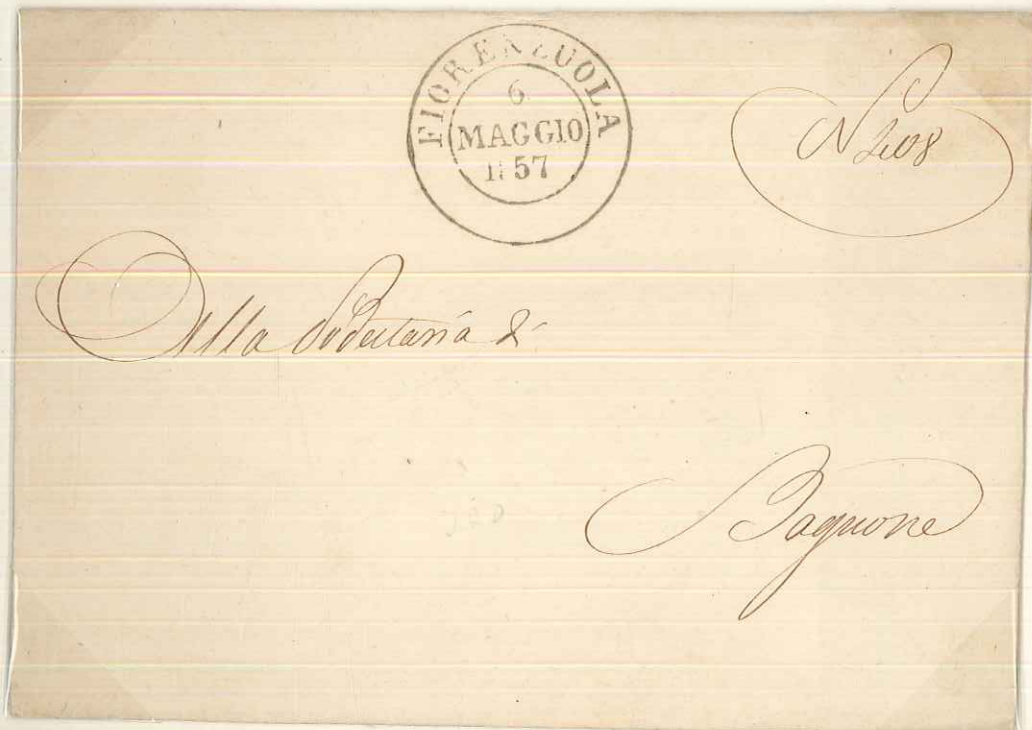 FIORENZUOLA
6
MAGGIO
1857
N 408
Alla Podestaria di
Bagnone